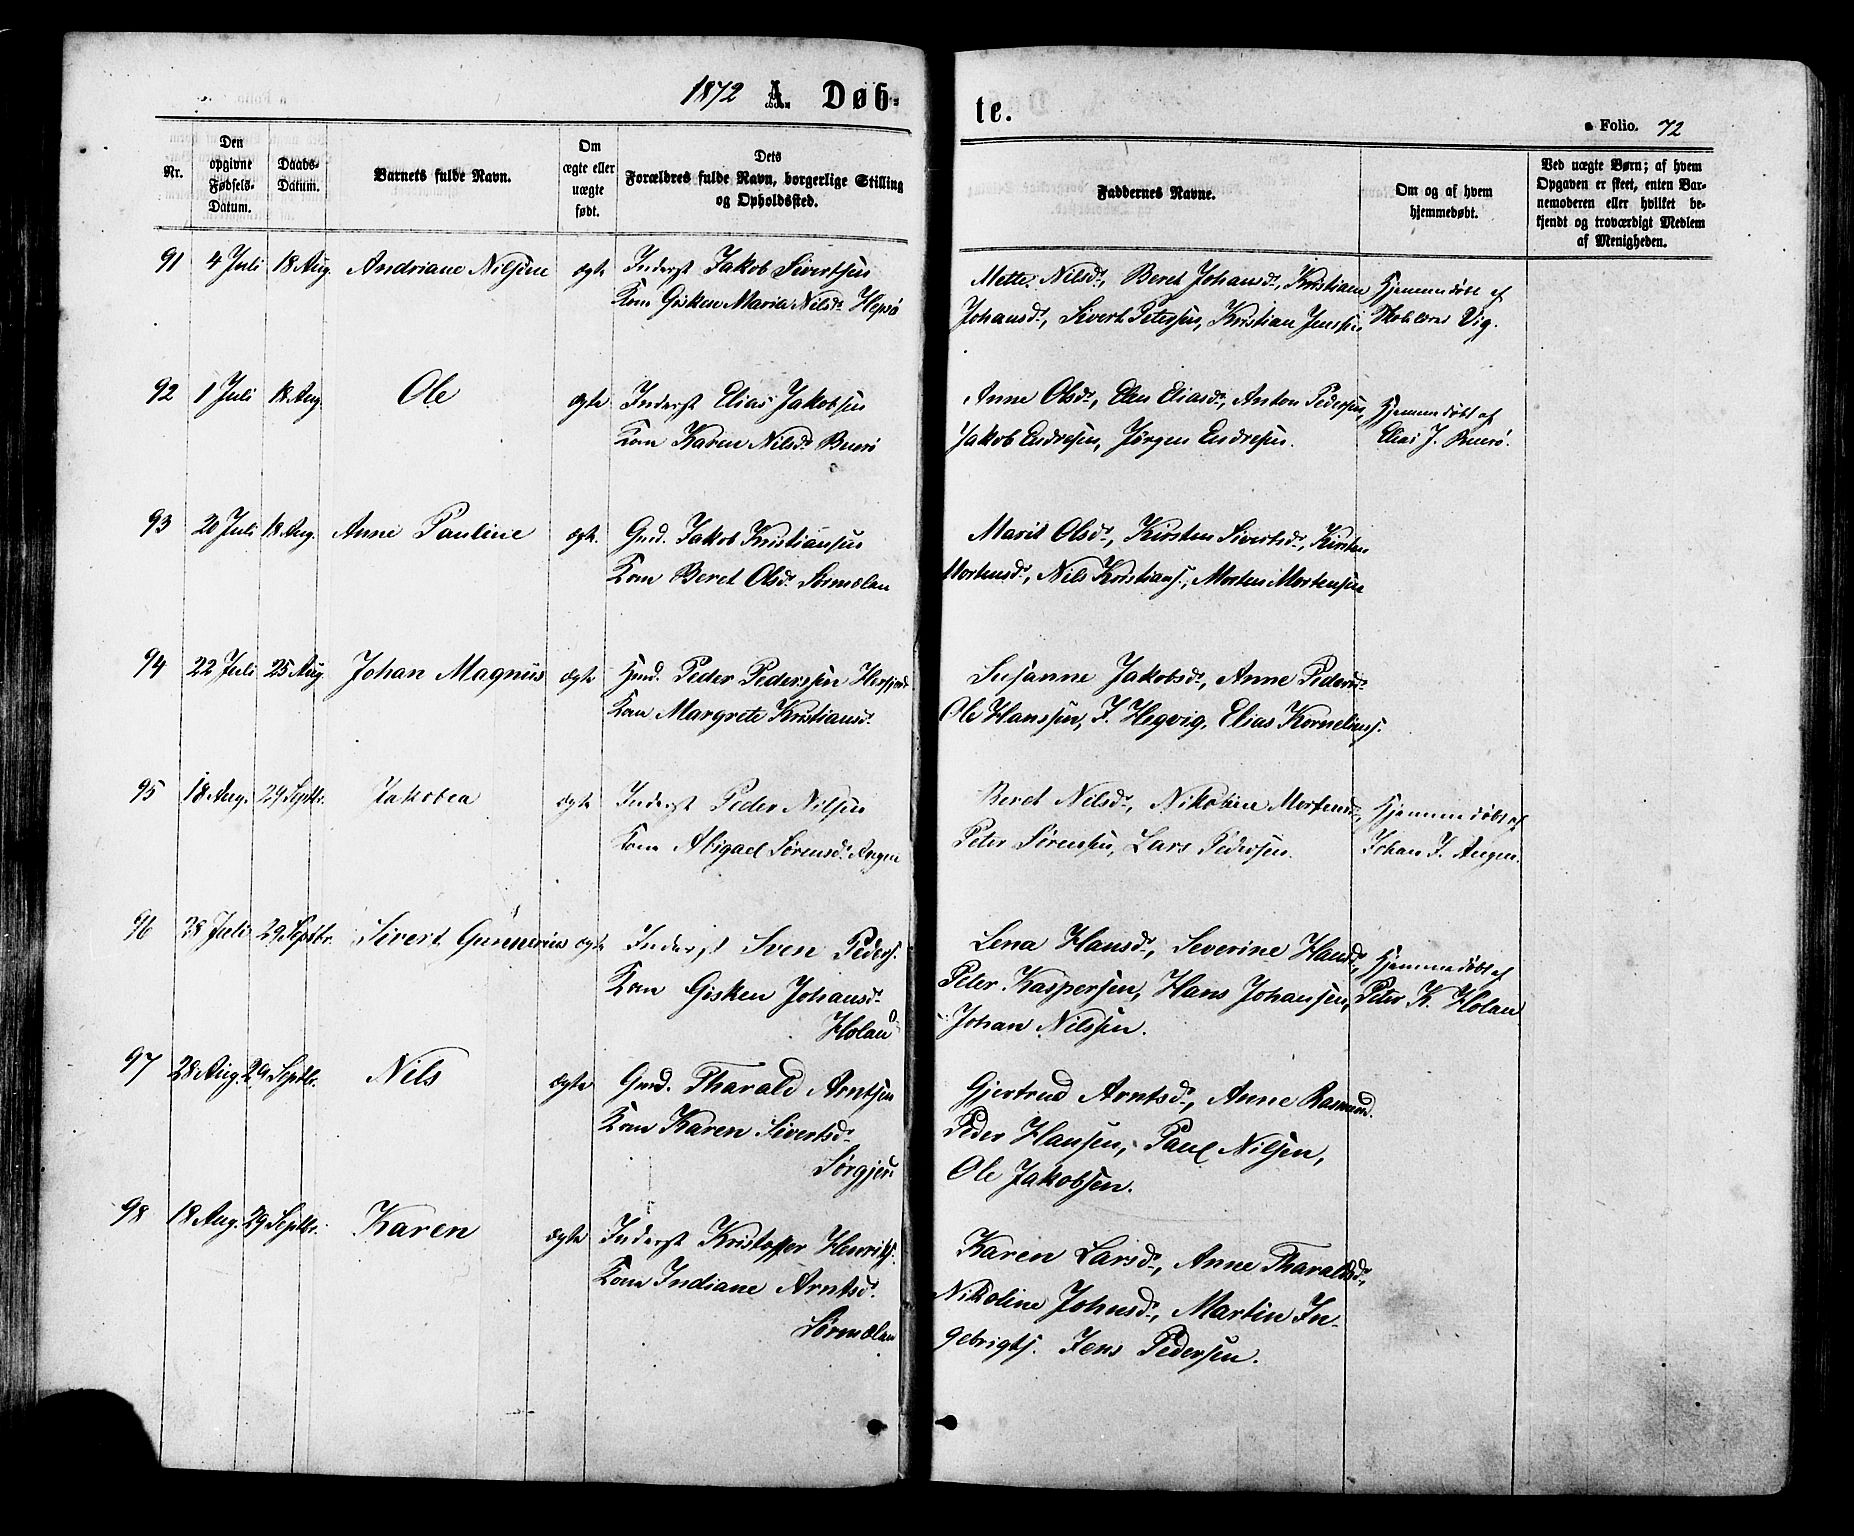 1872 A. Døb-
te.
Folio. 72
Nr.
Den
opgivne
Fødsels-
Datum.
Daabs-
Datum.
Barnets fulde Navn.
Om
ægte eller
uægte
født.
Dets
Forældres fulde Navn, borgerlige Stilling
og Opholdssted.
Faddernes Navne.
Om og af hvem
hjemmedøbt.
Ved uægte Børn; af hvem
Opgaven er skeet, enten Bar-
nemoderen eller hvilket be-
kjendt og troværdigt Medlem
af Menigheden.
91 4 Juli 18 Aug. Andriane Nilsine ægte Inderst Jakob Sivertsen
Kone Gisken Maria Nilsd. Hepsø
Mette Nilsd., Beret Johansd., Kristiane
Johansd., Sivert Petersen, Kristian Jenssen
Hjemmedøbt af
Vig.
92 1 Juli 18 Aug Ole ægte Inderst Elias Jakobsen
Kone Karen Nilsd. Buerø
Anne Olsd., Elen Eliasd., Anton Pedersen,
Jakob Endresen, Jørgen Endresen.
Hjemmedøbt af
Elias J. Buerø.
93 20 Juli 18 Aug. Anne Pauline ægt. Gmd. Jakob Kristiansen
Kone Beret Olsd. Sørmælan
Marit Olsd., Kirsten Sivertsd., Kirsten
Mortensd., Nils Kristians., Morten Mortensen
94 22 Juli 25 Aug Johan Magnus ægte Gmd. Peder Pederssen
Kone Margrete Kristiansd.
Susanne Jakobsd., Anne Pedersd.
Ole Hanssen, J. Hegvig, Elias Korneliuss.
95 18 Aug. 29 Septbr. Jakobea ægte Inderst Peder Nilsen
Kone Abigael Sørensd. Angen
Beret Nilsd., Nikoline Mortensd.,
Peter Sørensen, Lars Pedersen.
Hjemmedøbt af
Johan J. Angen.
96 28 Juli 29 Septbr. Sivert Gunnerius ægte Inderst Sven Peders.
Kone Gisken Johansd.
Holan
Lena Hansd., Severine Hansd.,
Peter Kaspersen, Hans Johansen,
Johan Nilssen.
Hjemmedøbt af
Peter K. Holan
97 28 Aug. 29 Septbr. Nils ægte Gmd. Tharald Arntsen
Kone Karen Sivertsd.
Sørgjer
Gjertrud Arntsd., Anne Rasmusd.
Peder Hansen, Paul Nilsen,
Ole Jakobsen.
98 18 Aug. 29 Septbr. Karen ægte Inderst Kristoffer Henriks.
Kone Indiane Arntsd.
Sørmælan
Karen Larsd., Anne Tharaldsd.,
Nikoline Johnsd., Martin In-
gebrigts. Jens Pedersen.